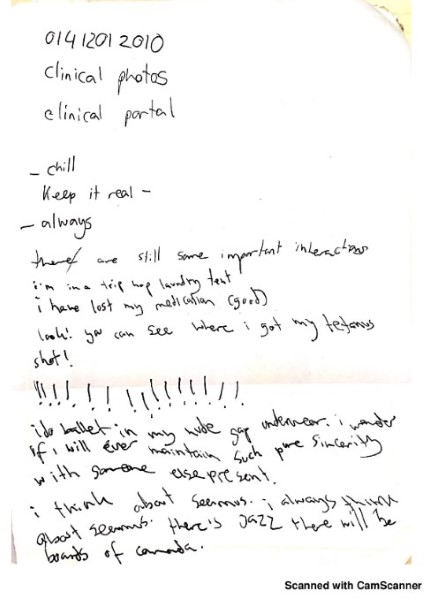 01412012010
clinical photos
clinical portal
- chill
Keep it real -
- always
there are still some important interactions
i'm in a trip hop laundry tent
i have lost my medication (good)
look! you can see where i got my tetanus
shot!
!!!!! ! ! ! ! ! ! ! ! ! !
i do ballet in my nude gap underwear. i wonder
if i will ever maintain such pure sincerity
with someone else present.
i think about seamus. i always think
about seamus. there's Jazz there will be
boards of canada.
Scanned with CamScanner